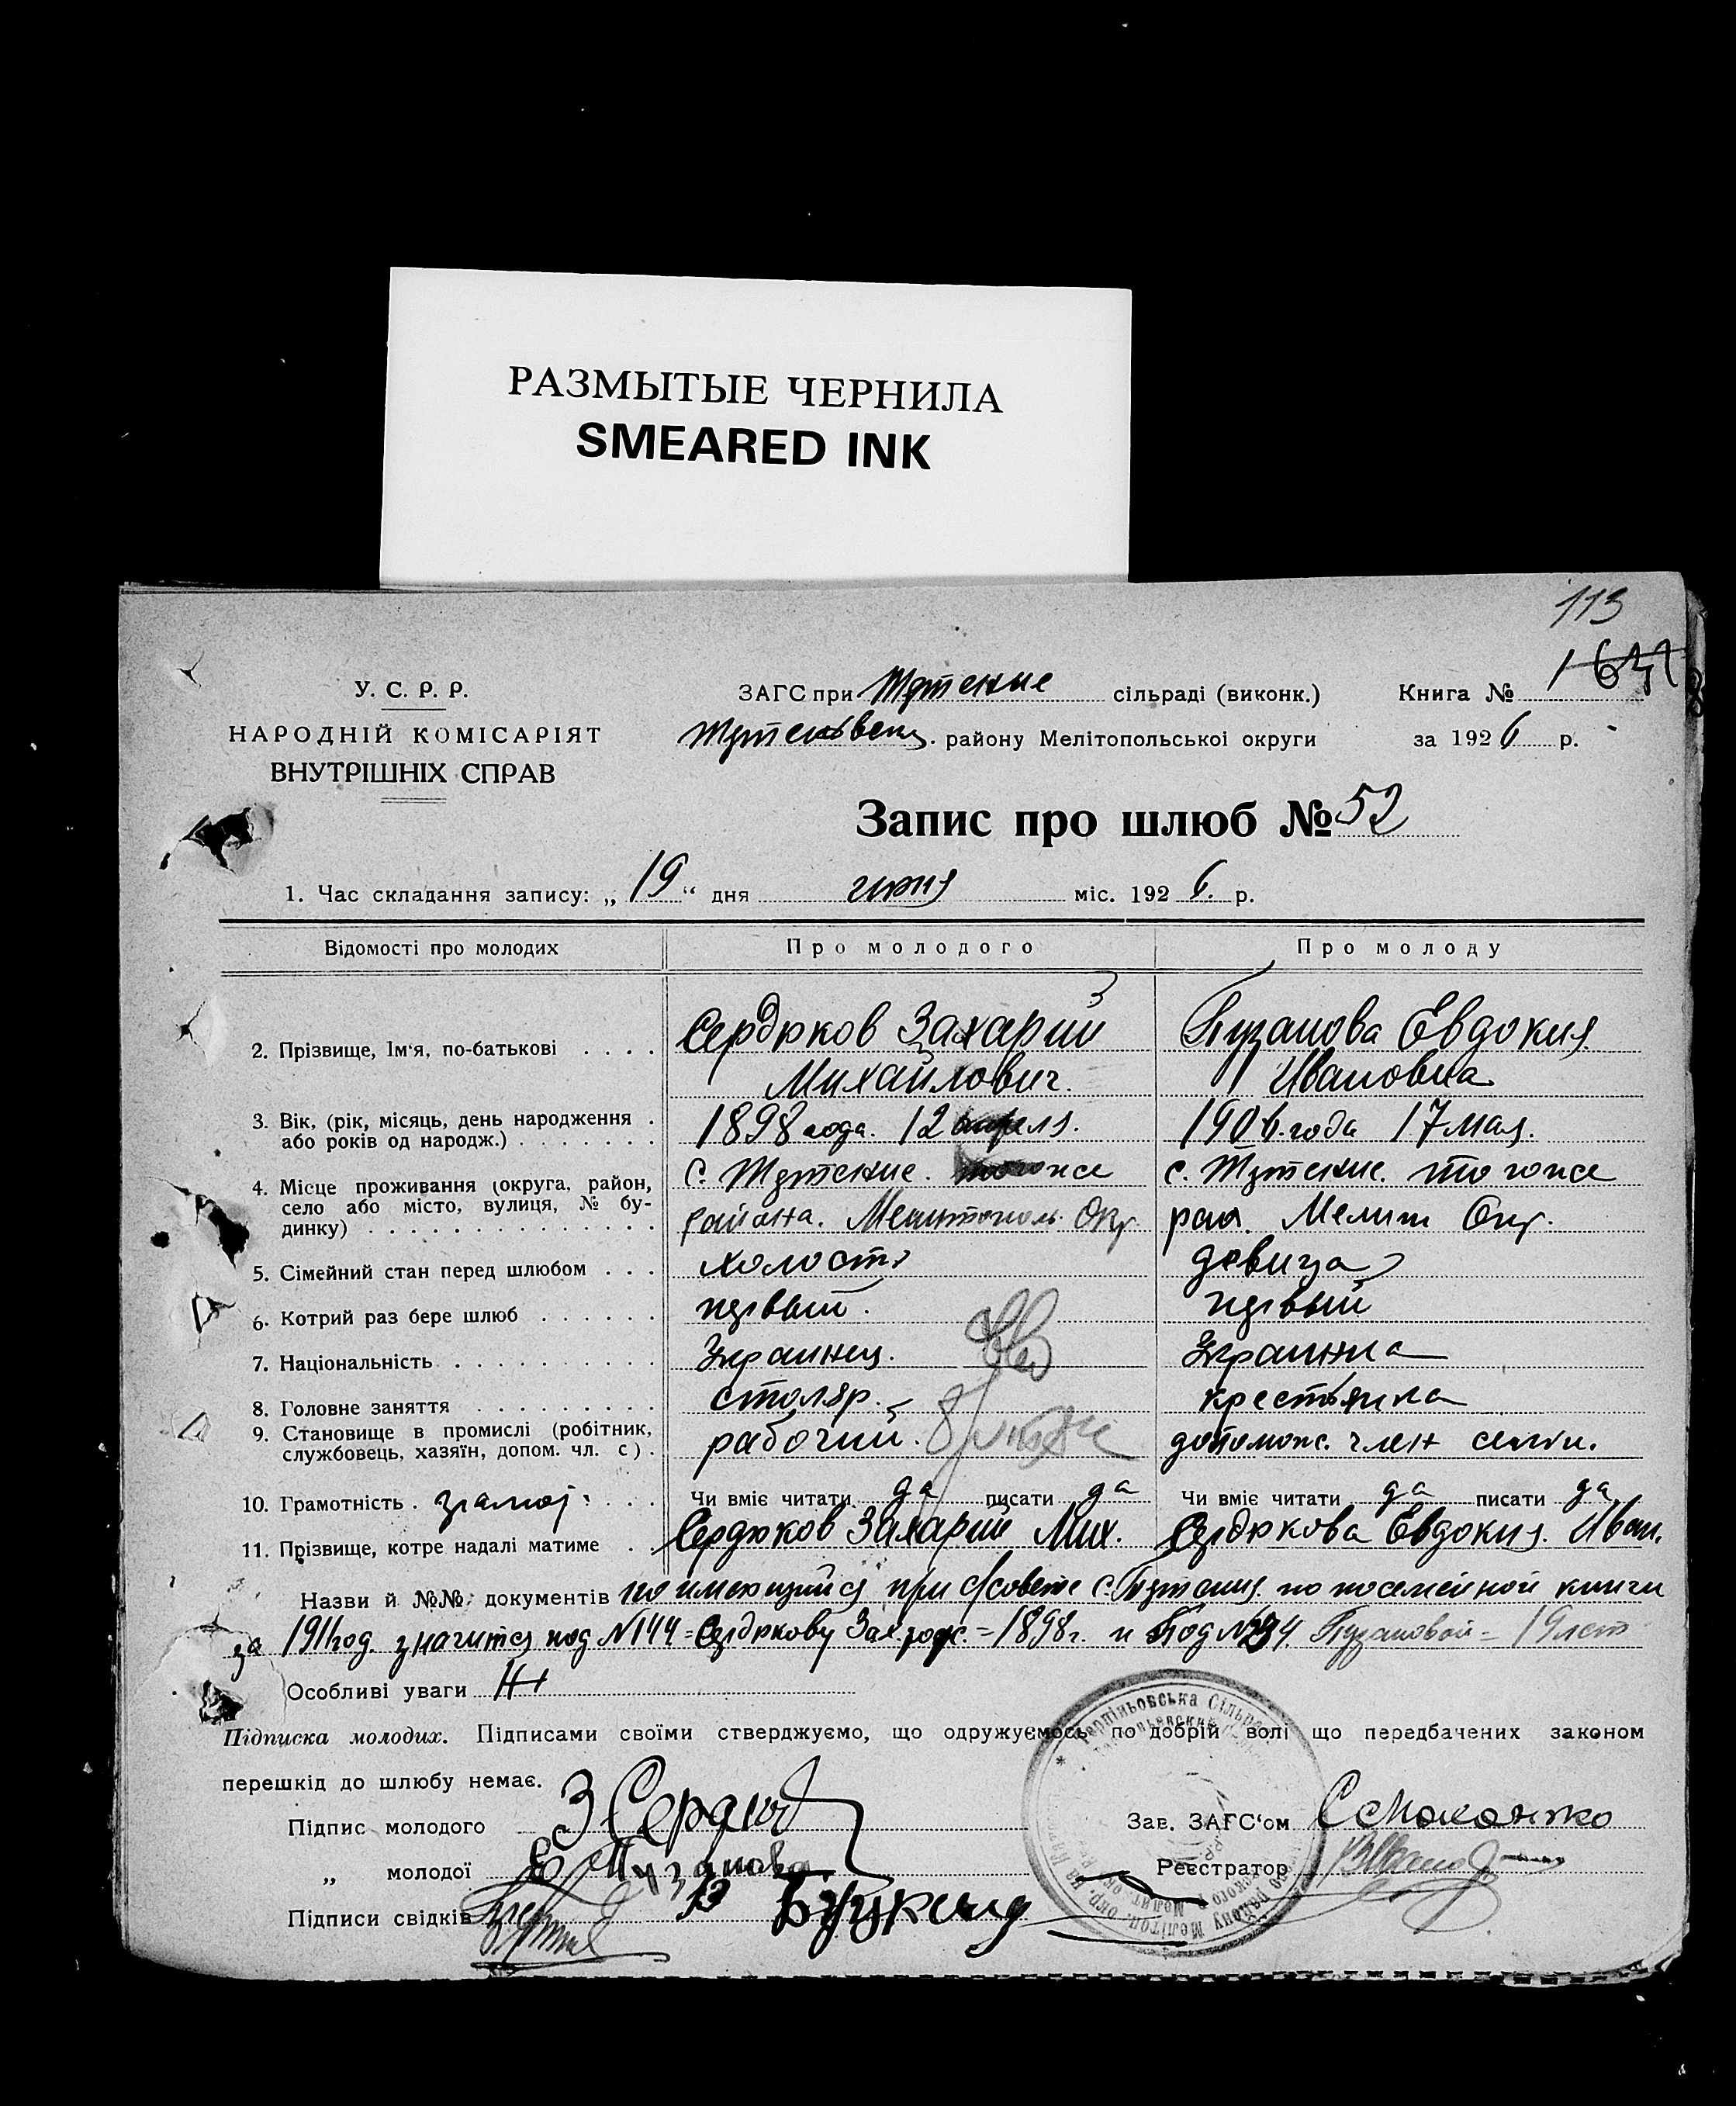 РАЗМЫТЫЕ ЧЕРНИЛА
SMEARED INK
113
У. С. Р. Р.
НАРОДНІЙ КОМІСАРІЯТ
ВНУТРІШНІХ СПРАВ
ЗАГС при сільраді (виконк.)
Книга №
району Мелітопольської округи
за 1926 р.
Запис про шлюб № 52
1. Час складання запису: „19“ дня июня міс. 1926. р.
Відомості про молодих
Про молодого
Про молоду
2. Прізвище, Ім‘я, по-батькові
Сердюков Захарий
Михайлович.
Пузанова Евдокия
Ивановна
3. Вік, (рік, місяць, день народження
або років од народж.)
1898 года. 12 апреля.
1906. года 17 мая.
4. Місце проживання (округа, район,
село або місто, вулиця, № бу-
динку)
с. того же
района. Мелитополь. Окр
с. того же
рай. Мелит Окр.
5. Сімейний стан перед шлюбом
холост
девица
6. Котрий раз бере шлюб
первый.
первый
7. Національність
Украинец.
Украинка
8. Головне заняття
столяр.
крестьянка
9. Становище в промислі (робітник,
службовець, хазяїн, допом. чл. с)
рабочий.
допомож. член семьи.
10. Грамотність.
Чи вміє читати да писати да
Чи вміє читати да писати да
11. Прізвище, котре надалі матиме
Сердюков Захарий Мих.
Сердюкова Евдокия. Иван.
Назви й №№ документів по имеющийся при с/совете с. по посемейной книги
за 1911 год. значится под N 144 = Сердюкову Зах рожд. = 1898 г. и Под № Пузановой = 19 лет
Особливі уваги
Підписка молодих. Підписами своїми стверджуємо, що одружуємось по добрій волі що передбачених законом
перешкід до шлюбу немає.
Підпис молодого З Сердюков
Зав. ЗАГС‘ом
„ молодої Е Пузанова
Реєстратор
Підписи свідків